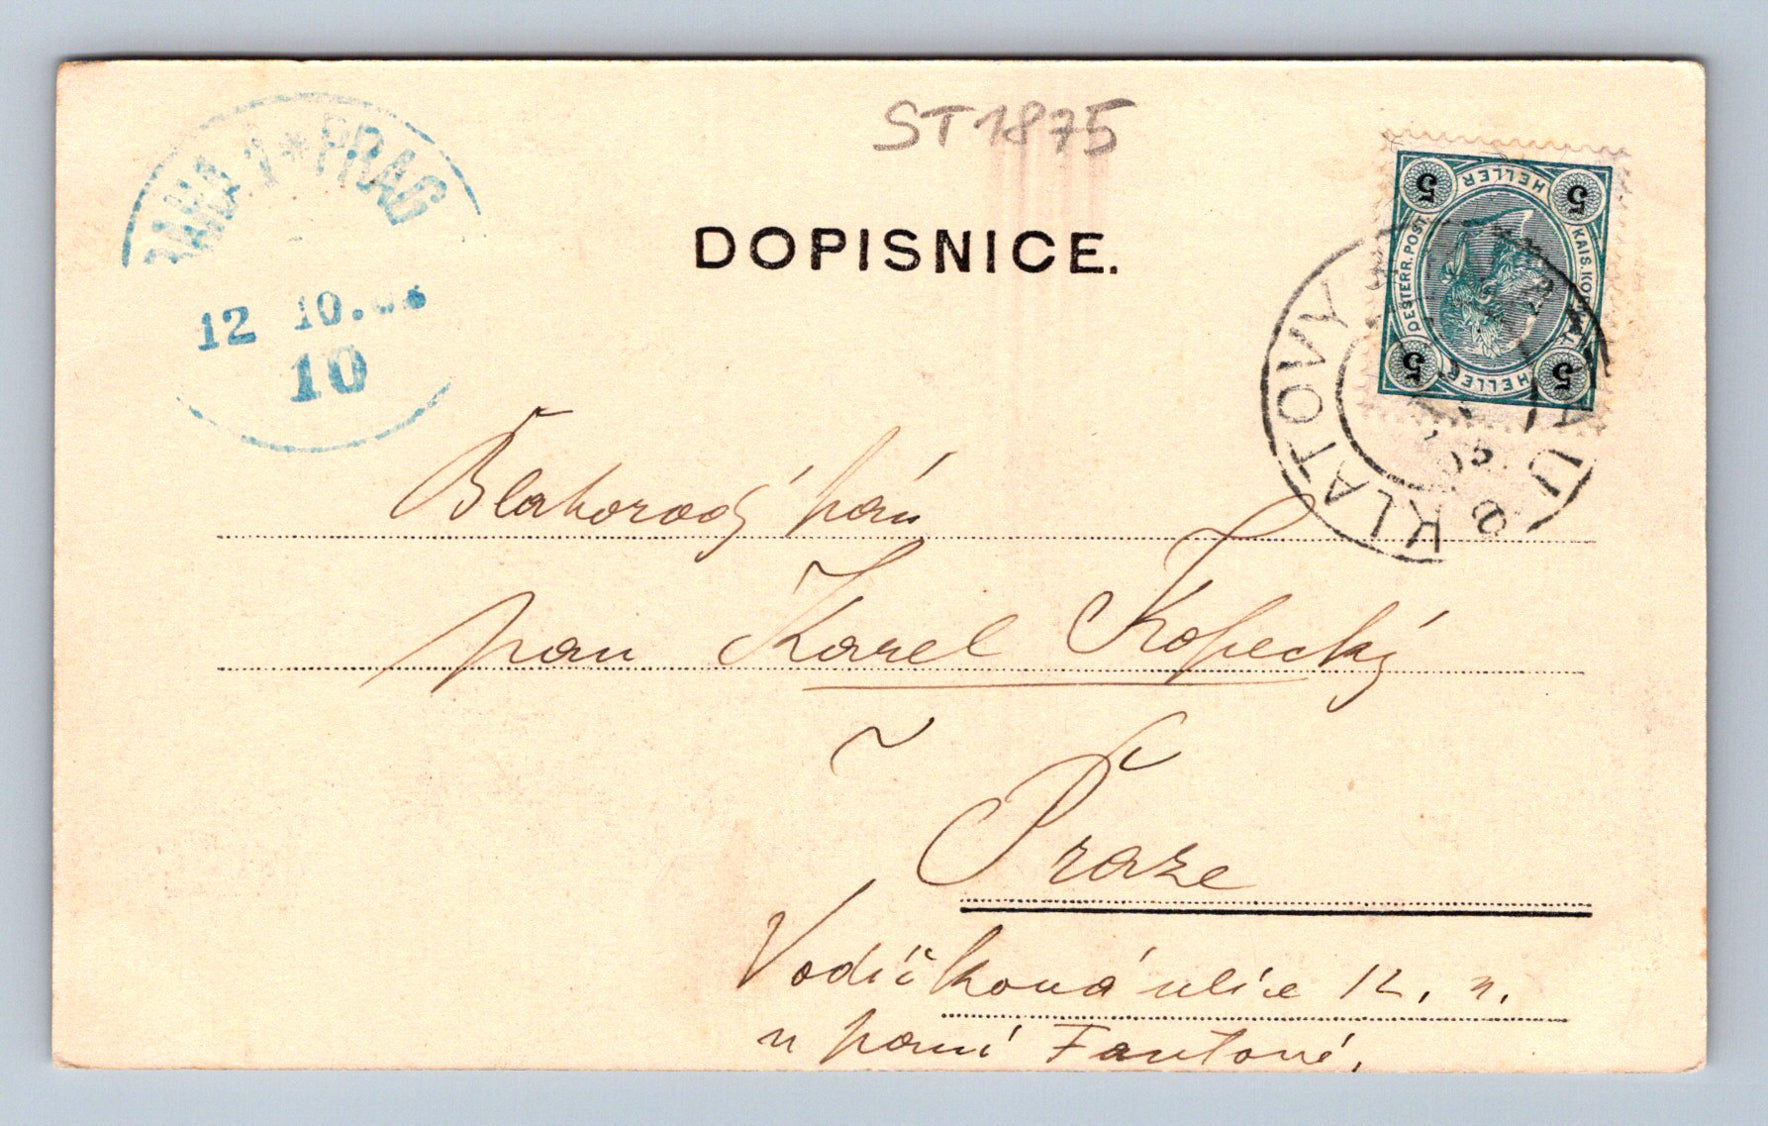 ST 1875
PRAHA 1 * PRAG
12 10.
10
DOPISNICE.
5 HELLER 5
OESTERR. POST.
5 HELLER 5
KLATOVY
Blahorodý pán
pan Karel Kopecký
v Praze
Vodičková ulice 12. n.
u paní Fantové.